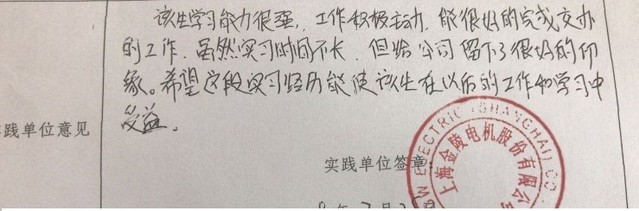 该生学习能力很强，工作积极主动，能很好的完成交办
的工作，虽然实习时间不长，但给公司留下了很好的印
象。希望这段实习经历能使该生在以后的工作和学习中
受益。
践单位意见
实践单位签章：
ELECTRIC (SHANGHAI) CO
上海金陵电机股份有限公司
年 7 月